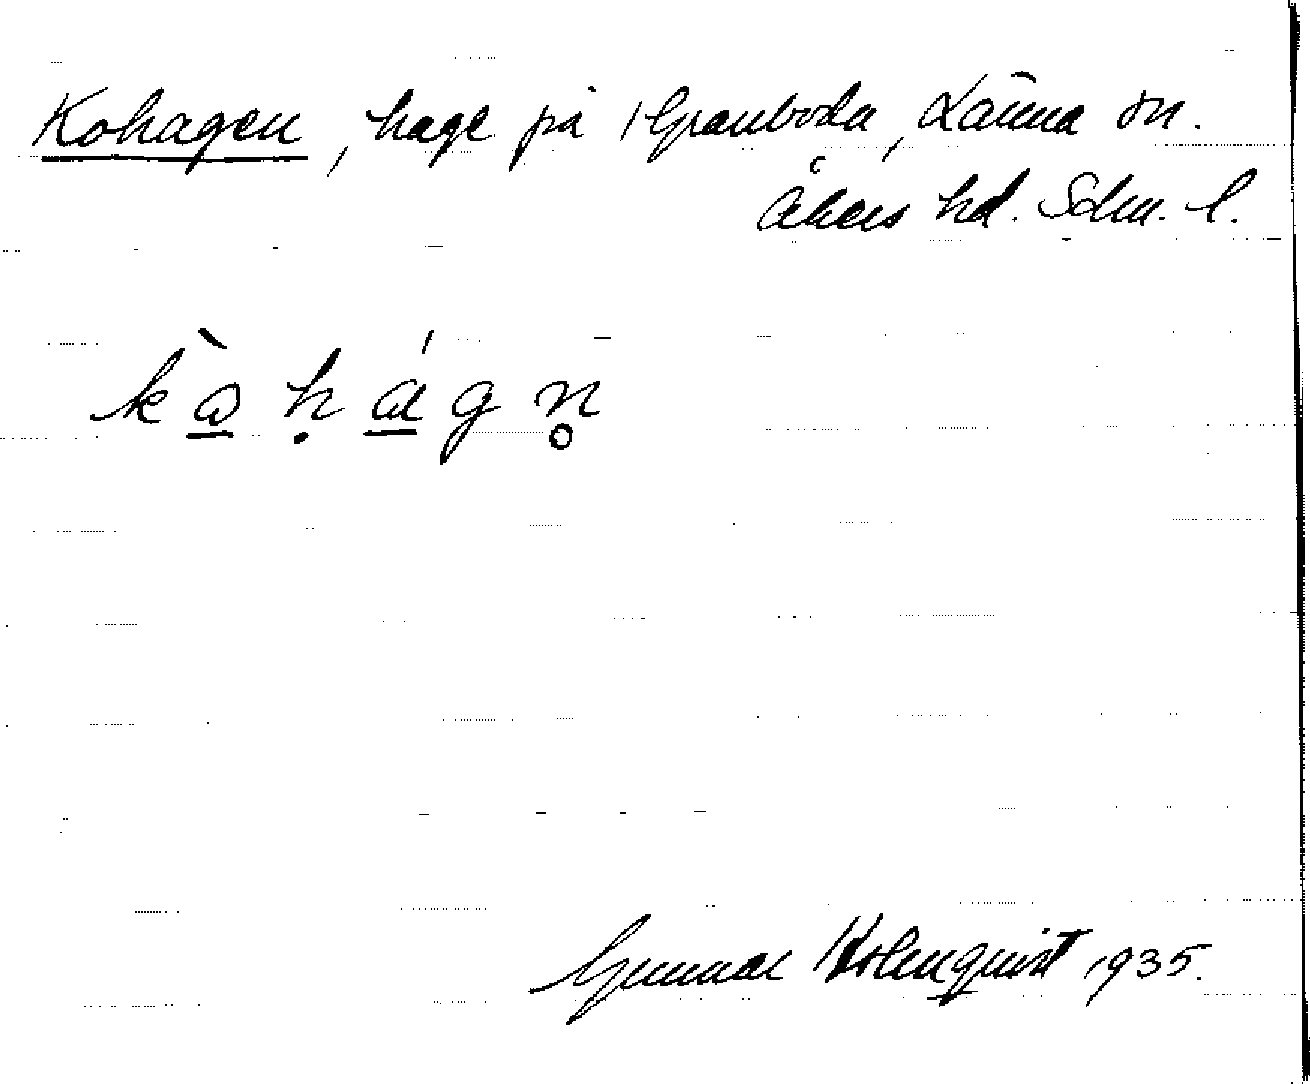 Kohagen, hage på Granboda, Länna sn.
Åkers hd. Sdm. l.
Gunnar Holmquist 1935.